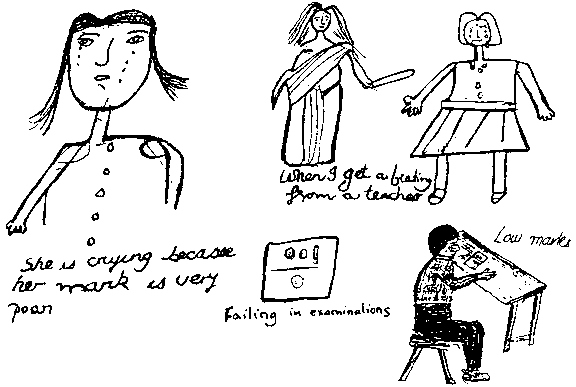 When I get a beating
from a teacher
She is crying becasee
her mark is very
poor
Failing in examinations
Low marks